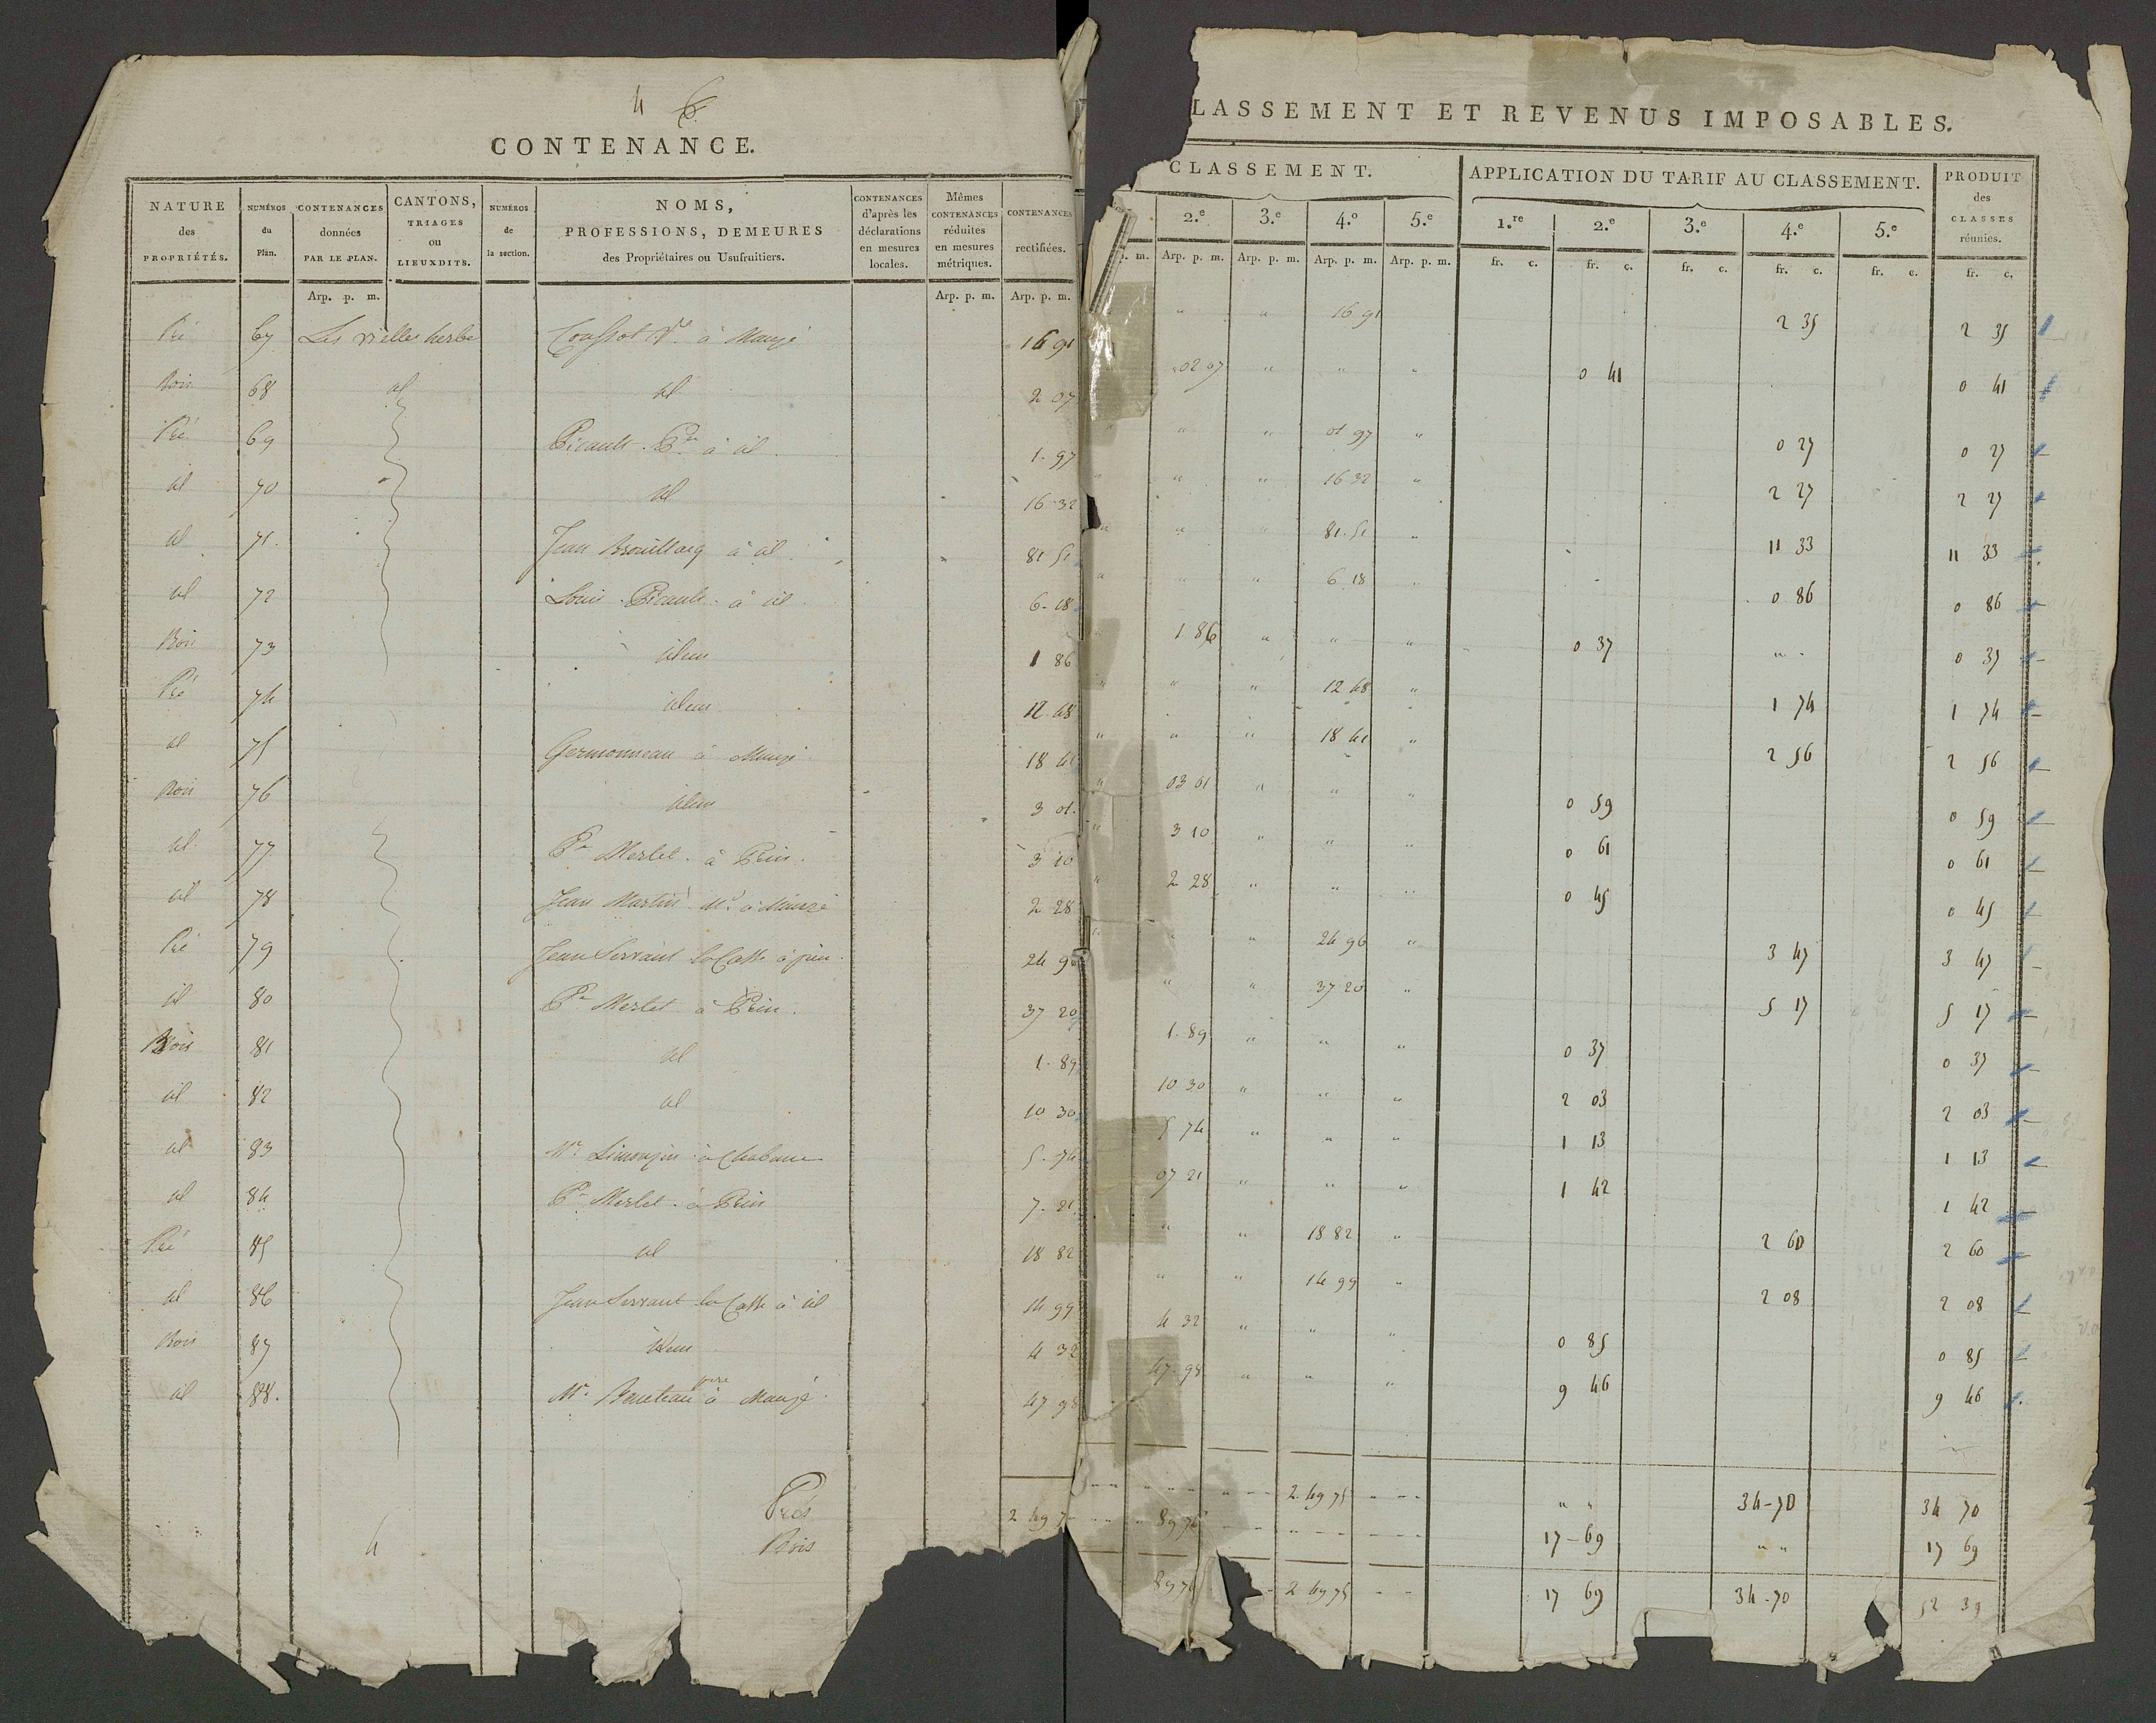 4 6
CONTENANCE.
NATURE des PROPRIÉTÉS. NUMÉROS du Plan. CONTENANCES données PAR LE PLAN. CANTONS, TRIAGES ou LIEUXDITS. NUMÉROS de la section. NOMS, PROFESSIONS, DEMEURES des Propriétaires ou Usufruitiers. CONTENANCES d'après les déclarations en mesures locales. Mêmes CONTENANCES réduites en mesures métriques. CONTENANCES rectifiées.
Arp. p. m. Arp. p. m. Arp. p. m.
Pré 67 Les vielles herbe à Mauzé 16 91
Bois 68 id id 2 07
Pré 69 Picault à id 1. 97
id 70 id 16-32
id 71. Jean à id 81 51
id 72 Louis Picault à id 6-18
Bois 73 idem 1 86
Pré 74 idem 12.48
id 75 Germonneau à Mauzé 18 41
Bois 76 idem 3 01.
id 77 Pre Merlet à Prin. 3 10
id 78 Jean Martin Md à Mauzé 2 28
Pré 79 Jean Servant à prin. 24 96
id 80 Pre Merlet à Prin. 37 20
Bois 81 id 1. 89
id 82 id 10 30
id 83 Mr. Limouzin à 5-74
id 84 Pre Merlet. à Prin 7-21
Pré 85 id 18 82
id 86 Jean Servant à id 14 99
Bois 87 idem 4 32
id 88. Mr. père à Mauzé. 47 98
Prés 2 49 7
4 Bois
LASSEMENT ET REVENUS IMPOSABLES.
CLASSEMENT. APPLICATION DU TARIF AU CLASSEMENT. PRODUIT des CLASSES réunies.
2.e 3.e 4.e 5.e 1.re 2.e 3.e 4.e 5.e
p. m. Arp. p. m. Arp. p. m. Arp. p. m. Arp. p. m. fr. c. fr. c. fr. c. fr. c. fr. c. fr. c.
" " 16 91 2 35 2 35
02 07 " " " 0 41 0 41
" " " 01 97 " 0 27 0 27
" " " 16 32 " 2 27 2 27
" " " 81.51 " 11 33 11 33
" " " 6 18 " 0 86 0 86
" 1 86 " " " 0 37 " " 0 37
" " " 12 48 " 1 74 1 74
" " " 18 41 " 2 56 2 56
" 03 01 " " " 0 59 0 59
" 3 10 " " " 0 61 0 61
" 2 28 " " " 0 45 0 45
" " " 24 96 " 3 47 3 47
" " 37 20 " 5 17 5 17
1. 89 " " " 0 37 0 37
10 30 " " " 2 03 2 03
5 74 " " " 1 13 1 13
07 21 " " " 1 42 1 42
" " 18 82 " 2 60 2 60
" " 14 99 " 2 08 2 08
4 32 " " " 0 85 0 85
47-98 " " " 9 46 9 46
2 49 75 " " 34-70 34 70
89 76 17-69 " " 17 69
89 76 2 49 75 17 69 34-70 52 39